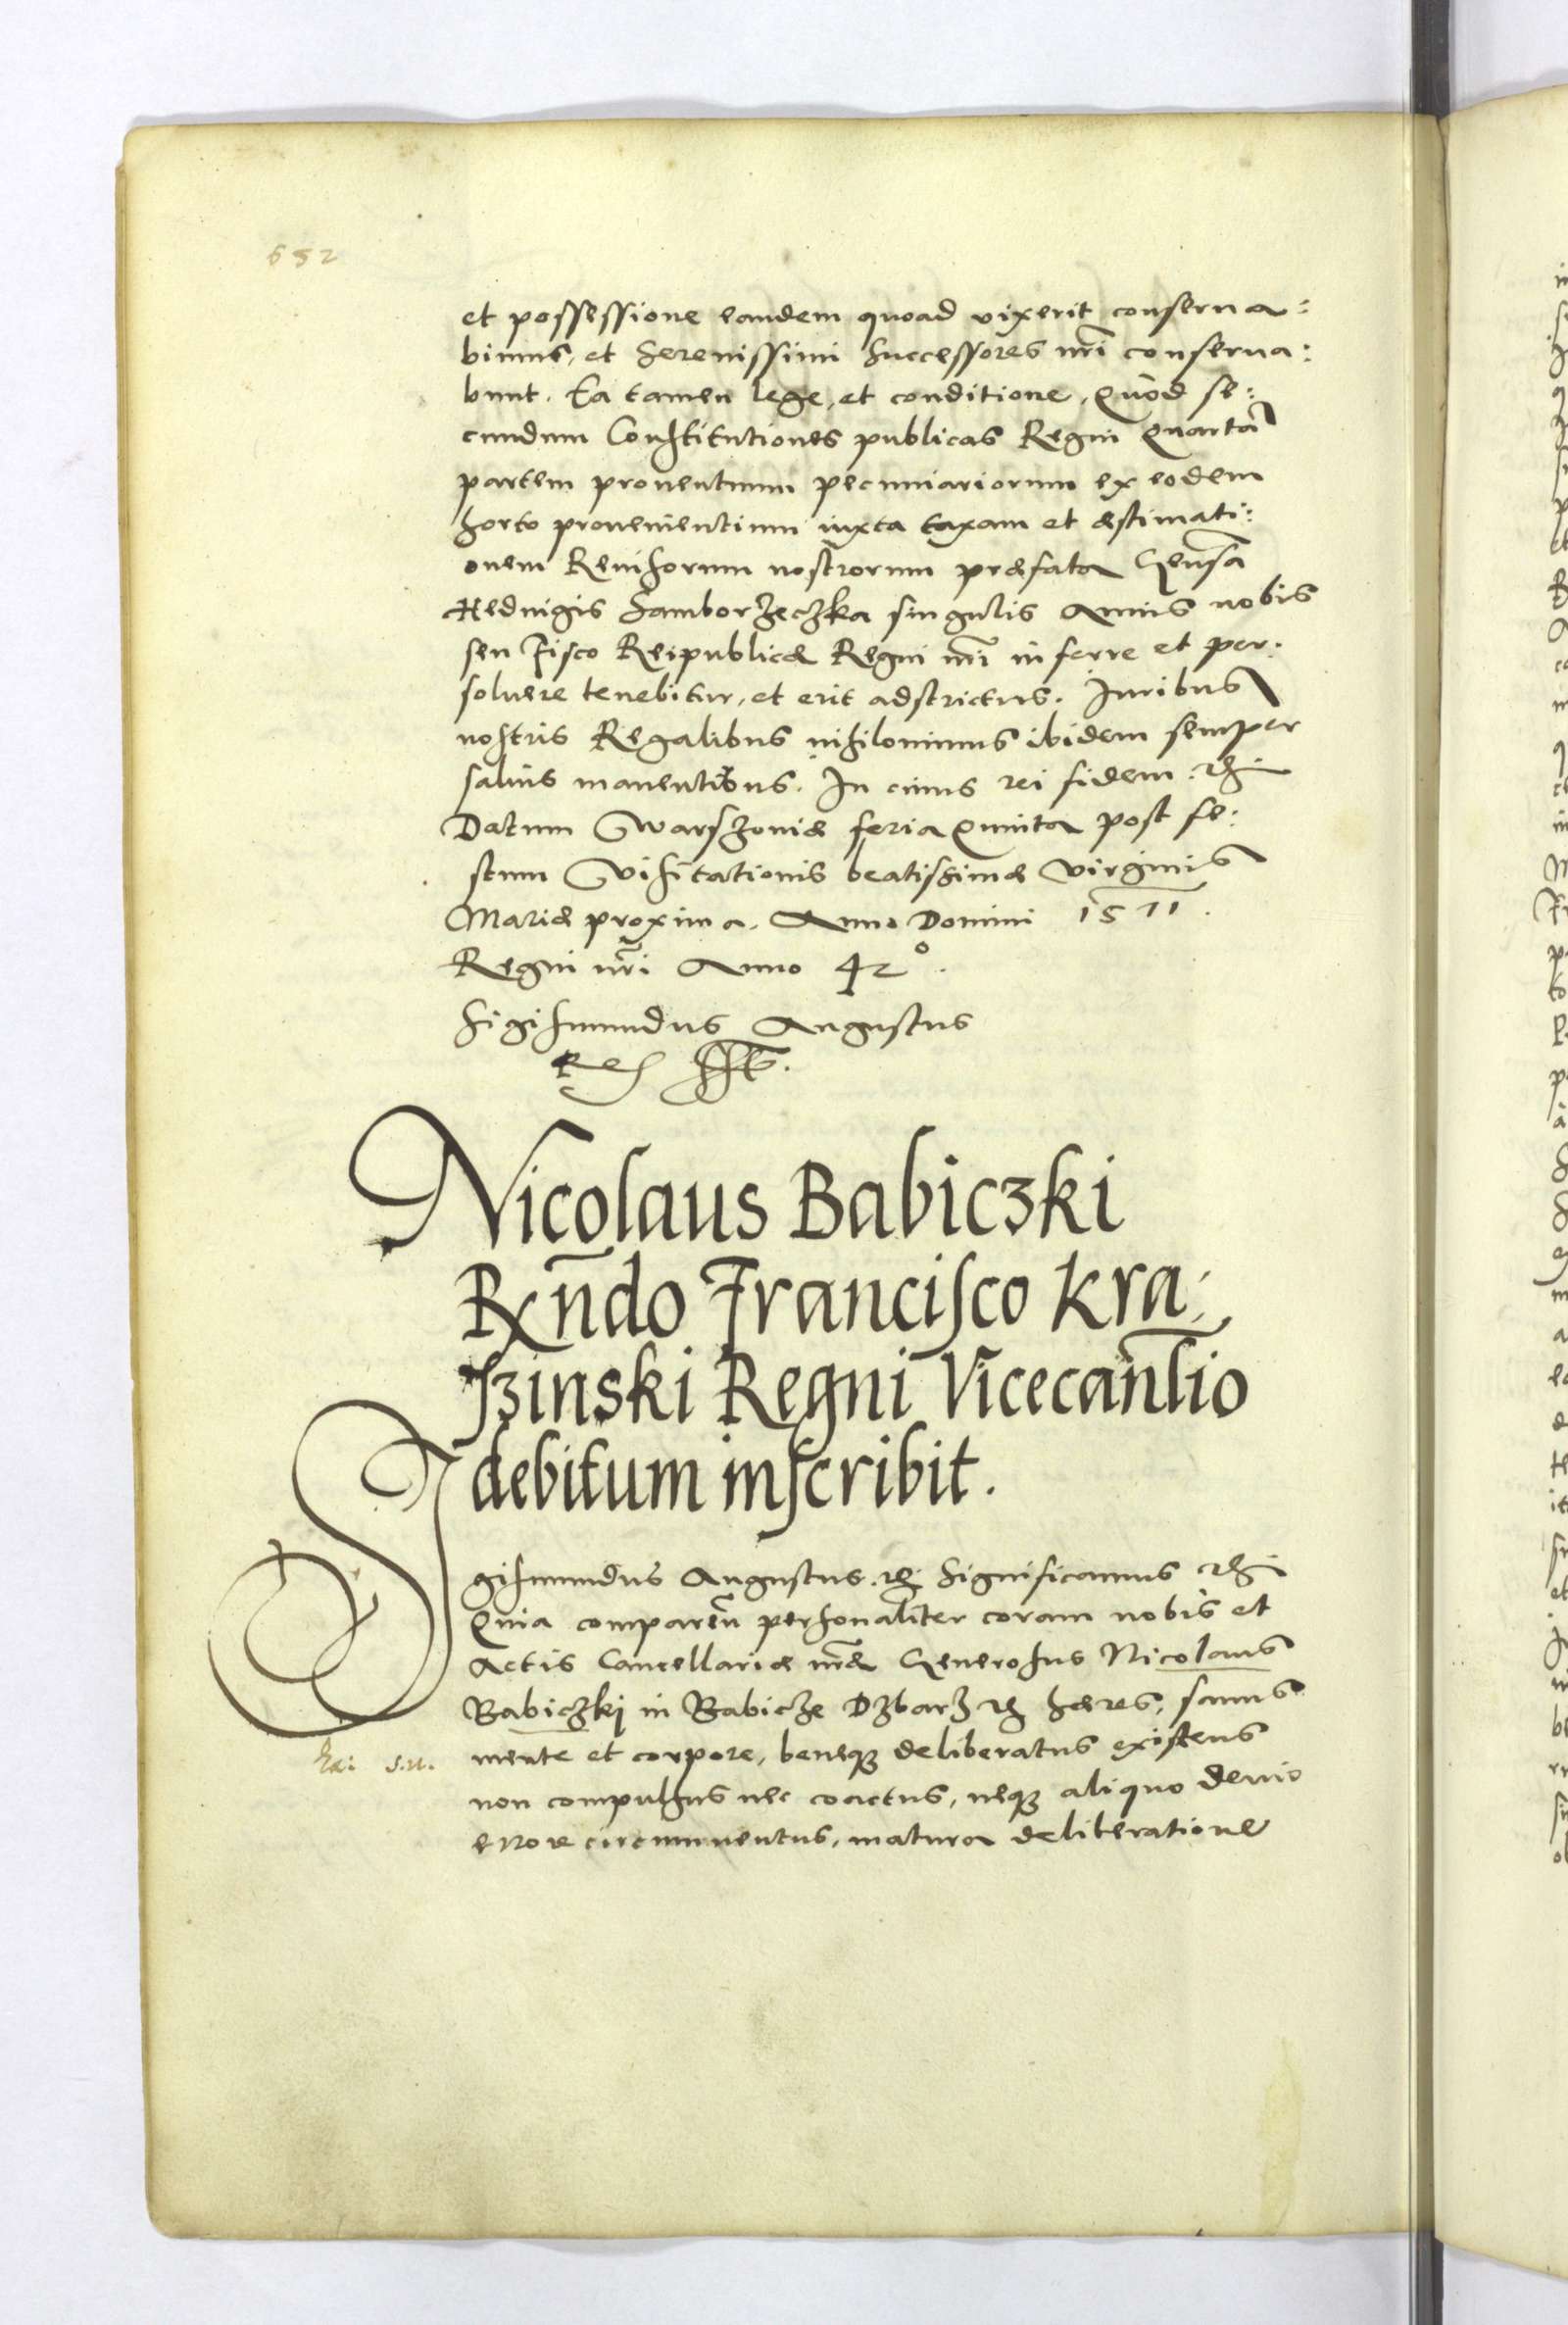 652
et possessione eandem quoad vixerit conserua:
bimus, et Serenissimi Successores nr̃i conserua:
bunt. Ea tamen lege, et conditione, Quòd se:
cundum Constitutiones publicas Regni Quartã
partem prouentuum pecuniariorum ex eodem
horto prouenientium iuxta taxam et æstimati:
onem Reuisorum nostrorum præfata Gensa
Heduigis Samborzeczka singulis Annis nobis
seu Fisco Reipublicæ Regni nr̃i inferre et per:
soluere tenebitur, et erit adstrictus. Iuribus
nostris Regalibus nihilominus ibidem semper
saluis manentibus. In cuius rei fidem. &c
Datum Warszouiæ feria Quinta post fe:
stum Visitationis beatissimæ Virginis
Mariæ proxima. Anno Domini 1571.
Regni nr̃i Anno 42°.
Sigismundus Augustus
Rex sst.
Nicolaus Babiczki
Rx̃ndo Francisco Kra:
szinski Regni Vicecanc̃lio
debitum inscribit.
Sigismundus Augustus &c Significamus &c
Quia comparen̄ personaliter coram nobis et
Actis Cancellariæ nr̃æ Generosus Nicolaus
Babiczkj in Babicze Dzbarz &c hæres, sanus
mente et corpore, beneq3 deliberatus existens
non compulsus nec coactus, neq3 aliquo deuio
errore circumuentus, matura deliberatione